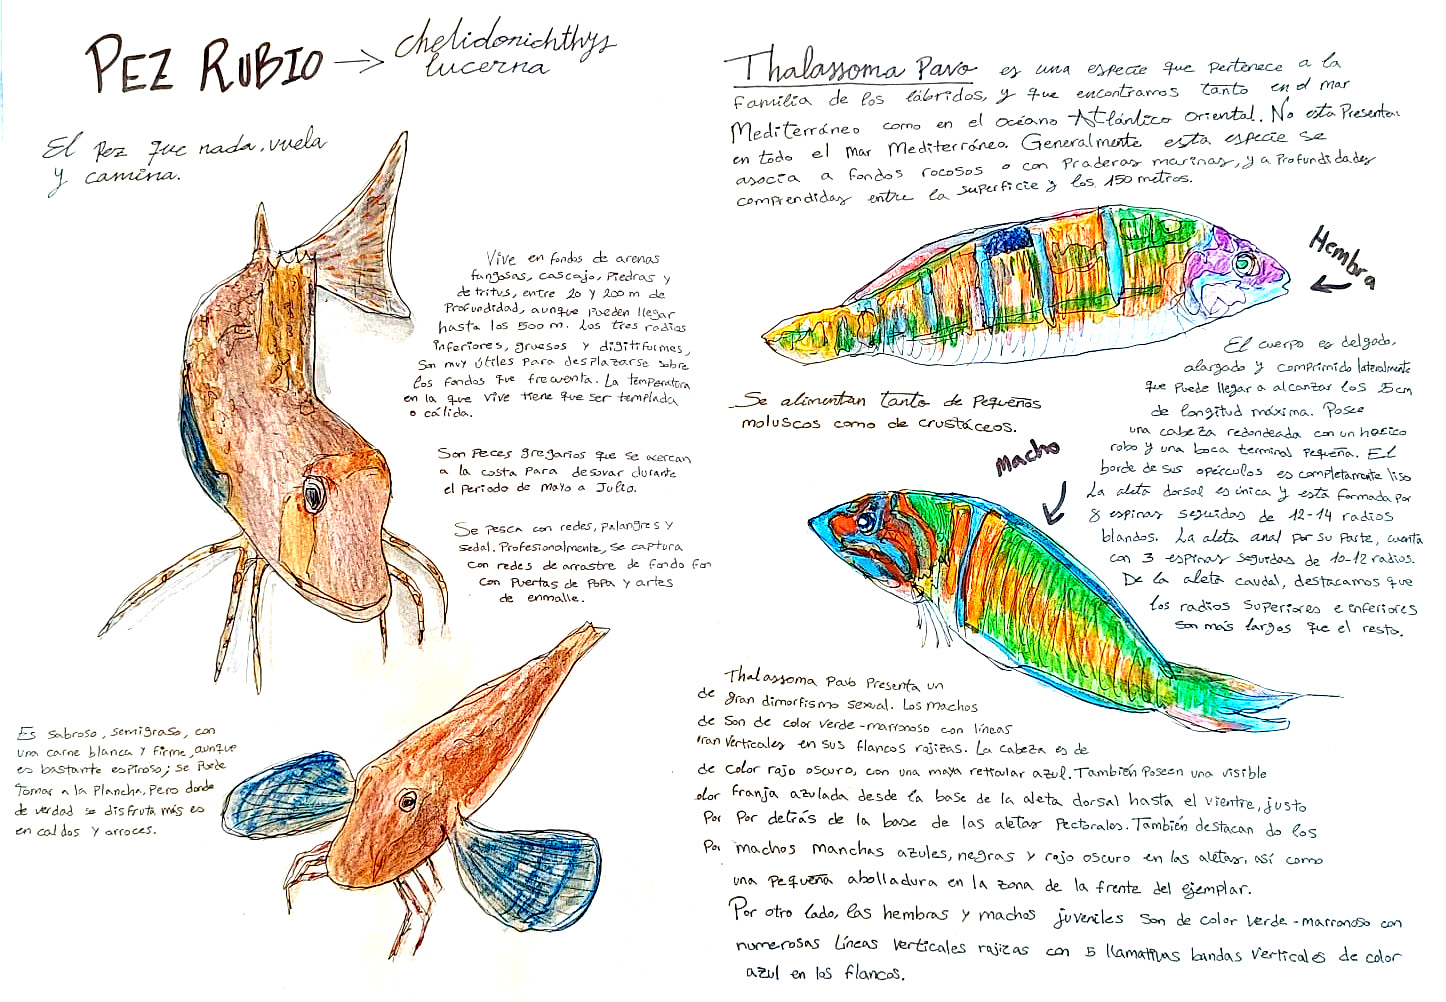 PEZ RUBIO → chelidonichthys
lucerna
El pez que nada, vuela
y camina.
Vive en fondos de arenas
fangosas, cascajo, piedras y
detritus, entre 20 y 200 m de
profundidad, aunque pueden llegar
hasta los 500 m. Los tres radios
inferiores, gruesos y digitiformes,
son muy útiles para desplazarse sobre
los fondos que frecuenta. La temperatura
en la que vive tiene que ser templada
o cálida.
Son peces gregarios que se acercan
a la costa para desovar durante
el periodo de Mayo a Julio.
Se pesca con redes, palangres y
sedal. Profesionalmente, se captura
con redes de arrastre de fondo fon
con puertas de popa y artes
de enmalle.
Es sabroso, semigraso, con
una carne blanca y firme, aunque
es bastante espinoso; se puede
tomar a la plancha, pero donde
de verdad se disfruta más es
en caldos y arroces.
Thalassoma Pavo es una especie que pertenece a la
familia de los lábridos, y que encontramos tanto en el mar
Mediterráneo como en el océano Atlántico oriental. No esta presente
en todo el mar Mediterráneo. Generalmente esta especie se
asocia a fondos rocosos o con praderas marinas, y a profundidades
comprendidas entre la superficie y los 150 metros.
Hembra
El cuerpo es delgado,
alargado y comprimido lateralmente
que puede llegar a alcanzar los 25cm
de longitud máxima. Posee
una cabeza redondeada con un hocico
robo y una boca terminal pequeña. El
borde de sus opérculos es completamente liso
La aleta dorsal es única y está formada por
8 espinas seguidas de 12-14 radios
blandos. La aleta anal por su parte, cuenta
con 3 espinas seguidas de 10-12 radios.
De la aleta caudal, destacamos que
los radios superiores e inferiores
son más largos que el resto.
Se alimentan tanto de pequeños
moluscos como de crustáceos.
Macho
Thalassoma Pavo presenta un
de gran dimorfismo sexual. Los machos
de son de color verde-marronoso con líneas
ran verticales en sus flancos rojizas. La cabeza es de
de color rojo oscuro, con una maya reticular azul. También poseen una visible
olor franja azulada desde la base de la aleta dorsal hasta el vientre, justo
por por detrás de la base de las aletas pectorales. También destacan do los
Po machos manchas azules, negras y rojo oscuro en las aletas, así como
una pequeña abolladura en la zona de la frente del ejemplar.
Por otro lado, las hembras y machos juveniles son de color verde-marronoso con
numerosas líneas verticales rojizas con 5 llamativas bandas verticales de color
azul en los flancos.